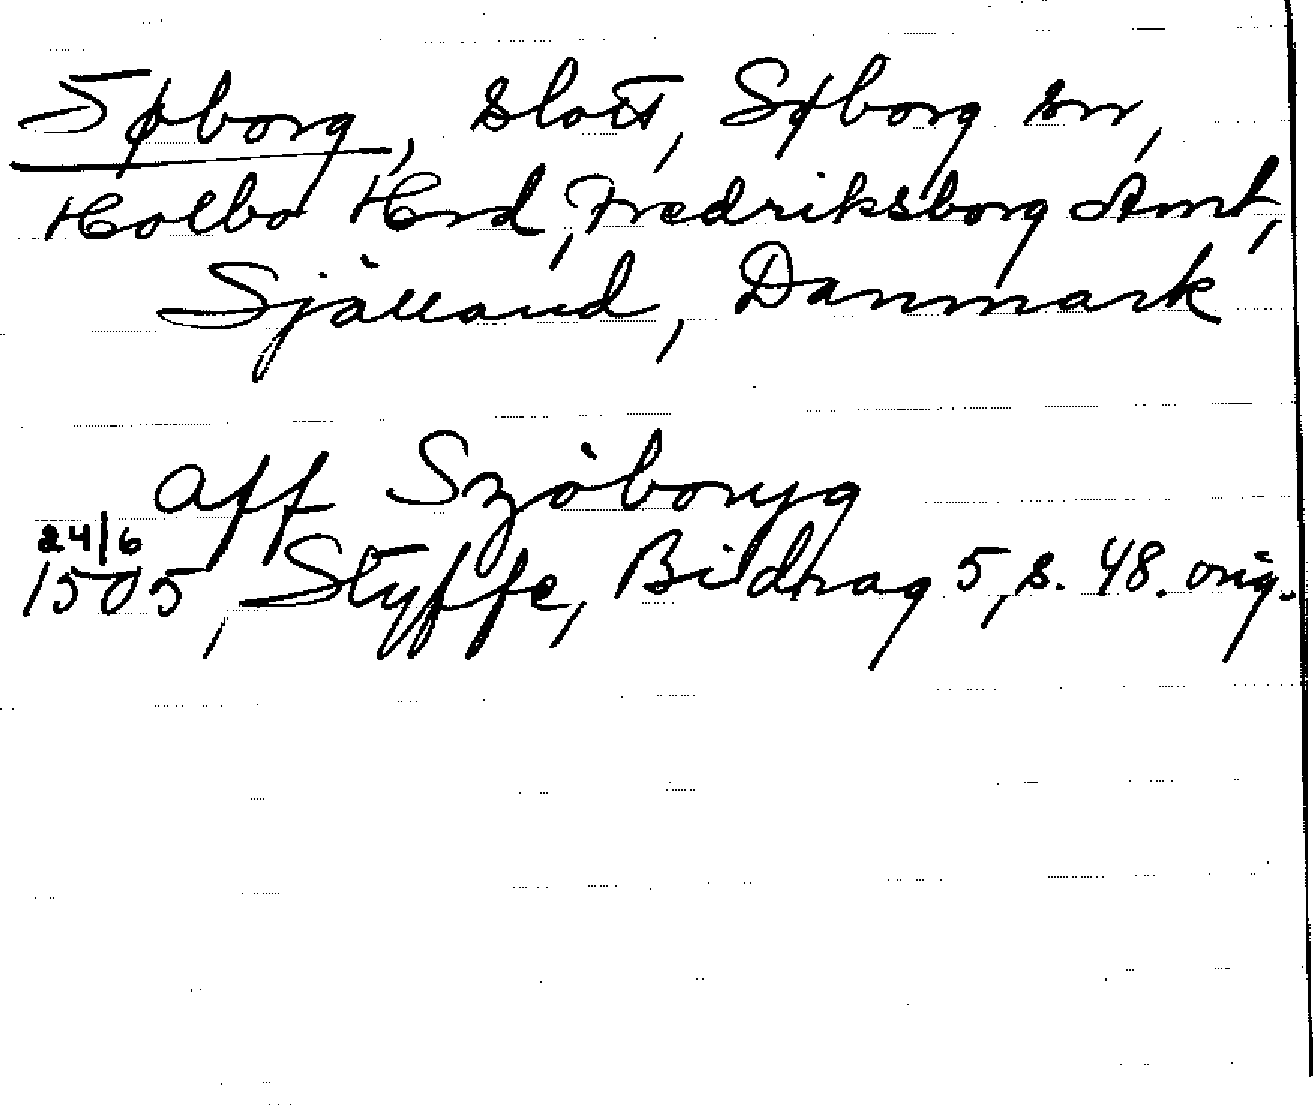 Søborg, slott, Søborg sn,
Holbo Hrd, Fredriksborg Amt,
Själland, Danmark
aff Szöboryg
24/6
1505, Styffe, Bidrag 5, s. 48. orig.